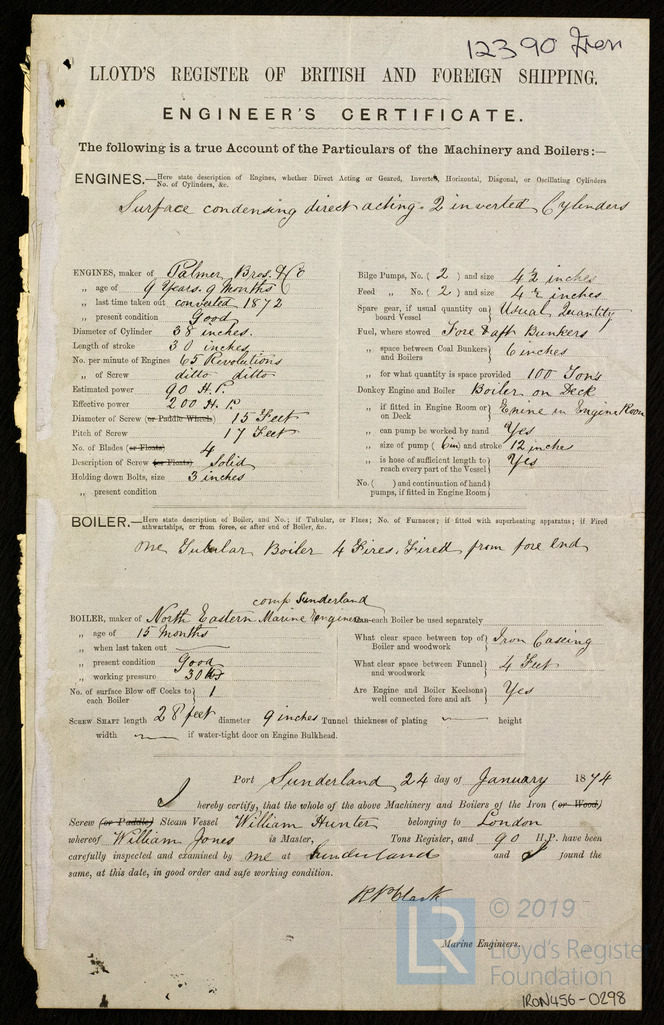 12390 Iron
LLOYD'S REGISTER OF BRITISH AND FOREIGN SHIPPING.
ENGINEER'S CERTIFICATE.
The following is a true Account of the Particulars of the Machinery and Boilers:—
ENGINES.—Here state description of Engines, whether Direct Acting or Geared, Inverted, Horizontal, Diagonal, or Oscillating Cylinders
No. of Cylinders, &c.
Surface condensing direct acting. 2 inverted Cylinders
ENGINES, maker of Palmer Bros. & Co
„ age of 9 Years. 9 Months
„ last time taken out converted 1872
„ present condition Good
Diameter of Cylinder 38 inches.
Length of stroke 30 inches
No. per minute of Engines 65 Revolutions
„ of Screw ditto ditto
Estimated power 90 H.P.
Effective power 200 H.P.
Diameter of Screw (or Paddle Wheels) 15 Feet
Pitch of Screw 17 Feet
No. of Blades (or Floats) 4
Description of Screw (or Floats) Solid
Holding down Bolts, size 3 inches
„ present condition
Bilge Pumps, No. ( 2 ) and size 4½ inches
Feed „ No. ( 2 ) and size 4½ inches
Spare gear, if usual quantity on board Vessel } Usual Quantity
Fuel, where stowed Fore & aft Bunkers
„ space between Coal Bunkers and Boilers } 6 inches
„ for what quantity is space provided 100 Tons
Donkey Engine and Boiler Boiler on Deck
„ if fitted in Engine Room or on Deck } Enine in Engine Room
„ can pump be worked by hand Yes
„ size of pump ( 6 in ) and stroke 12 inches
„ is hose of sufficient length to reach every part of the Vessel } Yes
No. ( ) and continuation of hand pumps, if fitted in Engine Room }
BOILER.—Here state description of Boiler, and No.; if Tubular, or Flues; No. of Furnaces; if fitted with superheating apparatus; if Fired
athwartships, or from fores, or after end of Boiler, &c.
One Tubular Boiler 4 Fires. Fired from fore End
comp Sunderland
BOILER, maker of North Eastern Marine Engineers
„ age of 15 Months
„ when last taken out —
„ present condition Good
„ working pressure 30 lbs
No. of surface Blow off Cocks to each Boiler } 1
Can each Boiler be used separately
What clear space between top of Boiler and woodwork } Iron Caseing
What clear space between Funnel and woodwork } 4 Feet
Are Engine and Boiler Keelsons well connected fore and aft } Yes
SCREW SHAFT length 28 feet diameter 9 inches Tunnel thickness of plating — height
width — if water-tight door on Engine Bulkhead.
Port Sunderland 24 day of January 1874
I hereby certify, that the whole of the above Machinery and Boilers of the Iron (or Wood)
Screw (or Paddle) Steam Vessel William Hunter belonging to London
whereof William Jones is Master, Tons Register, and 90 H.P. have been
carefully inspected and examined by me at Sunderland and I found the
same, at this date, in good order and safe working condition.
Clark
Marine Engineers.
LR
© 2019
Lloyd's Register
Foundation
IRON456-0298